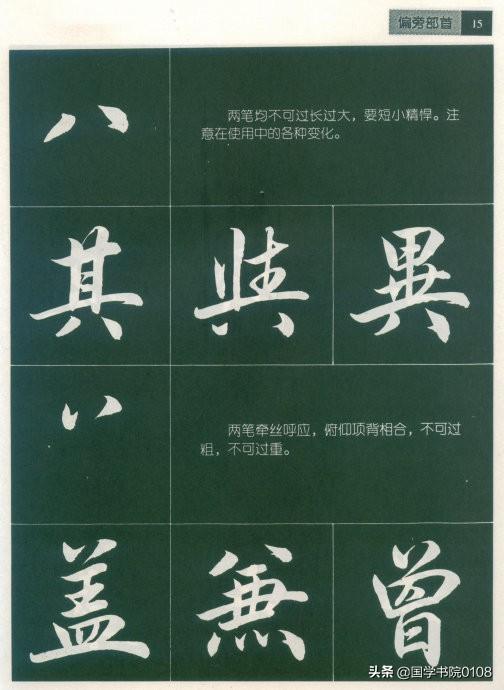 偏旁部首 15
八
两笔均不可过长过大，要短小精悍。注
意在使用中的各种变化。
其 異
丷
两笔牵丝呼应，俯仰项背相合，不可过
粗，不可过重。
盖 兼 曾
头条 @国学书院0108